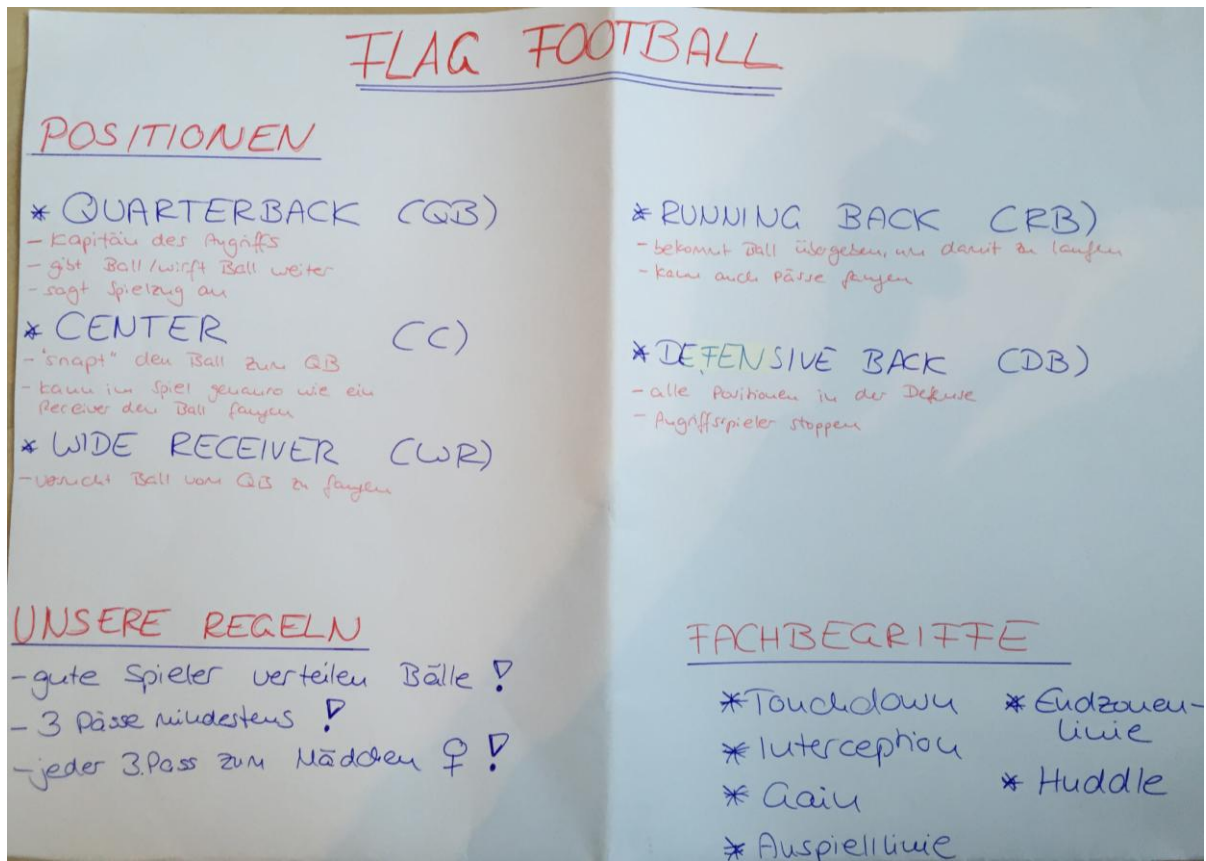 FLAG FOOTBALL
POSITIONEN
* QUARTERBACK (QB)
- Kapitän des Angriffs
- gibt Ball/wirft Ball weiter
- sagt Spielzug an
* CENTER (C)
- "snapt" den Ball zum QB
- kann im Spiel genauso wie ein
Receiver den Ball fangen
* WIDE RECEIVER (WR)
- versucht Ball vom QB zu fangen
* RUNNING BACK (RB)
- bekommt Ball übergeben, um damit zu laufen
- kann auch Pässe fangen
* DEFENSIVE BACK (DB)
- alle Positionen in der Defense
- Angriffsspieler stoppen
UNSERE REGELN
- gute Spieler verteilen Bälle !
- 3 Pässe mindestens !
- jeder 3. Pass zum Mädchen ♀ !
FACHBEGRIFFE
* Touchdown
* Interception
* Gain
* Anspiellinie
* Endzonen-
linie
* Huddle